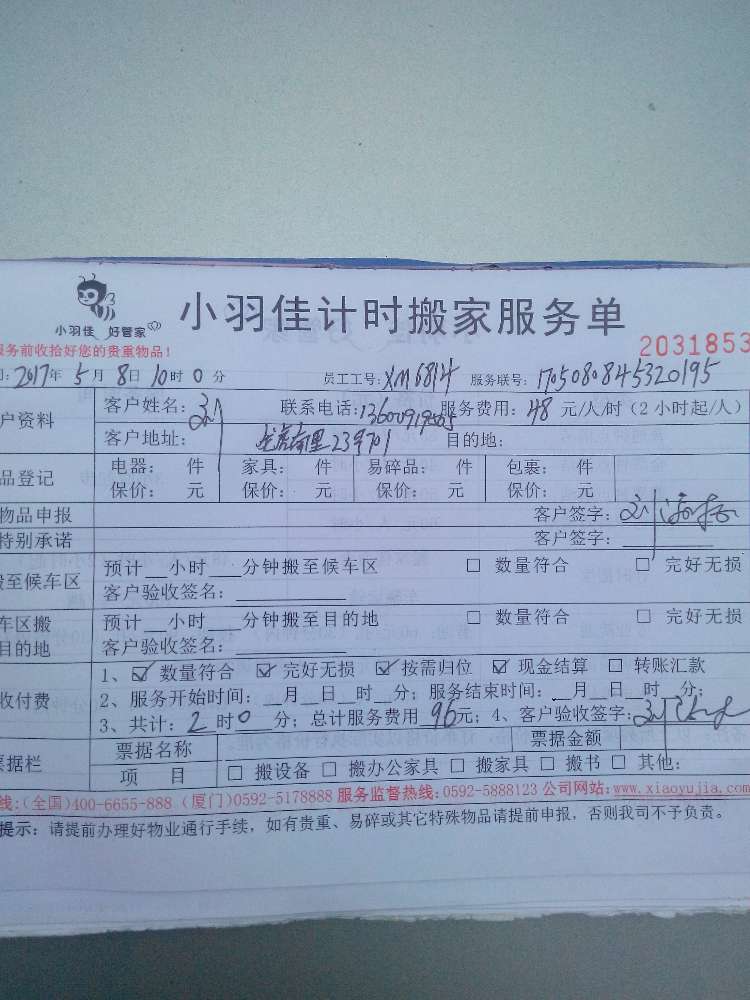 小羽佳 好管家
小羽佳计时搬家服务单
服务前收拾好您的贵重物品!
2031853
:2017年5月8日10时0分 员工工号:XM6814 服务联号:1705080845320195
户资料 客户姓名:刘 联系电话: 服务费用:48元/人/时(2小时起/人)
客户地址: 23号701 目的地:
品登记 电器: 件 家具: 件 易碎品: 件 包裹: 件
保价: 元 保价: 元 保价: 元 保价: 元
物品申报 客户签字:刘
特别承诺 客户签字:
搬至候车区 预计__小时__分钟搬至候车区 □ 数量符合 □ 完好无损
客户验收签名:
车区搬 预计__小时__分钟搬至目的地 □ 数量符合 □ 完好无损
目的地 客户验收签名:
收付费 1、☑ 数量符合 ☑ 完好无损 ☑ 按需归位 ☑ 现金结算 □ 转账汇款
2、服务开始时间:__月__日__时__分;服务结束时间:__月__日__时__分;
3、共计:2时0分;总计服务费用96元;4、客户验收签字:刘
票据栏 票据名称 票据金额
项 目 □ 搬设备 □ 搬办公家具 □ 搬家具 □ 搬书 □ 其他:
线:(全国)400-6655-888 (厦门)0592-5178888 服务监督热线:0592-5888123 公司网站:www.xiaoyujia.com
提示:请提前办理好物业通行手续,如有贵重、易碎或其它特殊物品请提前申报,否则我司不予负责。